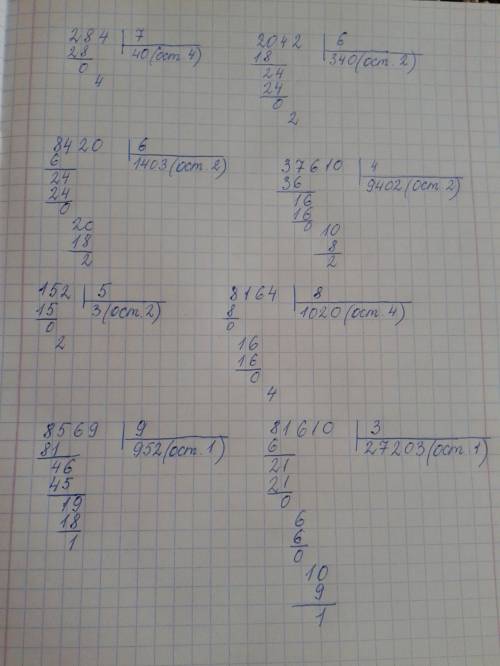 284 | 7
28 40(ост 4)
0
4
2042 | 6
18 340(ост. 2)
24
24
0
2
8420 | 6
6 1403(ост. 2)
24
24
0
20
18
2
37610 | 4
36 9402(ост. 2)
16
16
0
10
8
2
152 | 5
15 3(ост. 2)
0
2
8164 | 8
8 1020(ост. 4)
0
16
16
0
4
8569 | 9
81 952(ост. 1)
46
45
19
18
1
81610 | 3
6 27203(ост. 1)
21
21
0
6
6
0
10
9
1